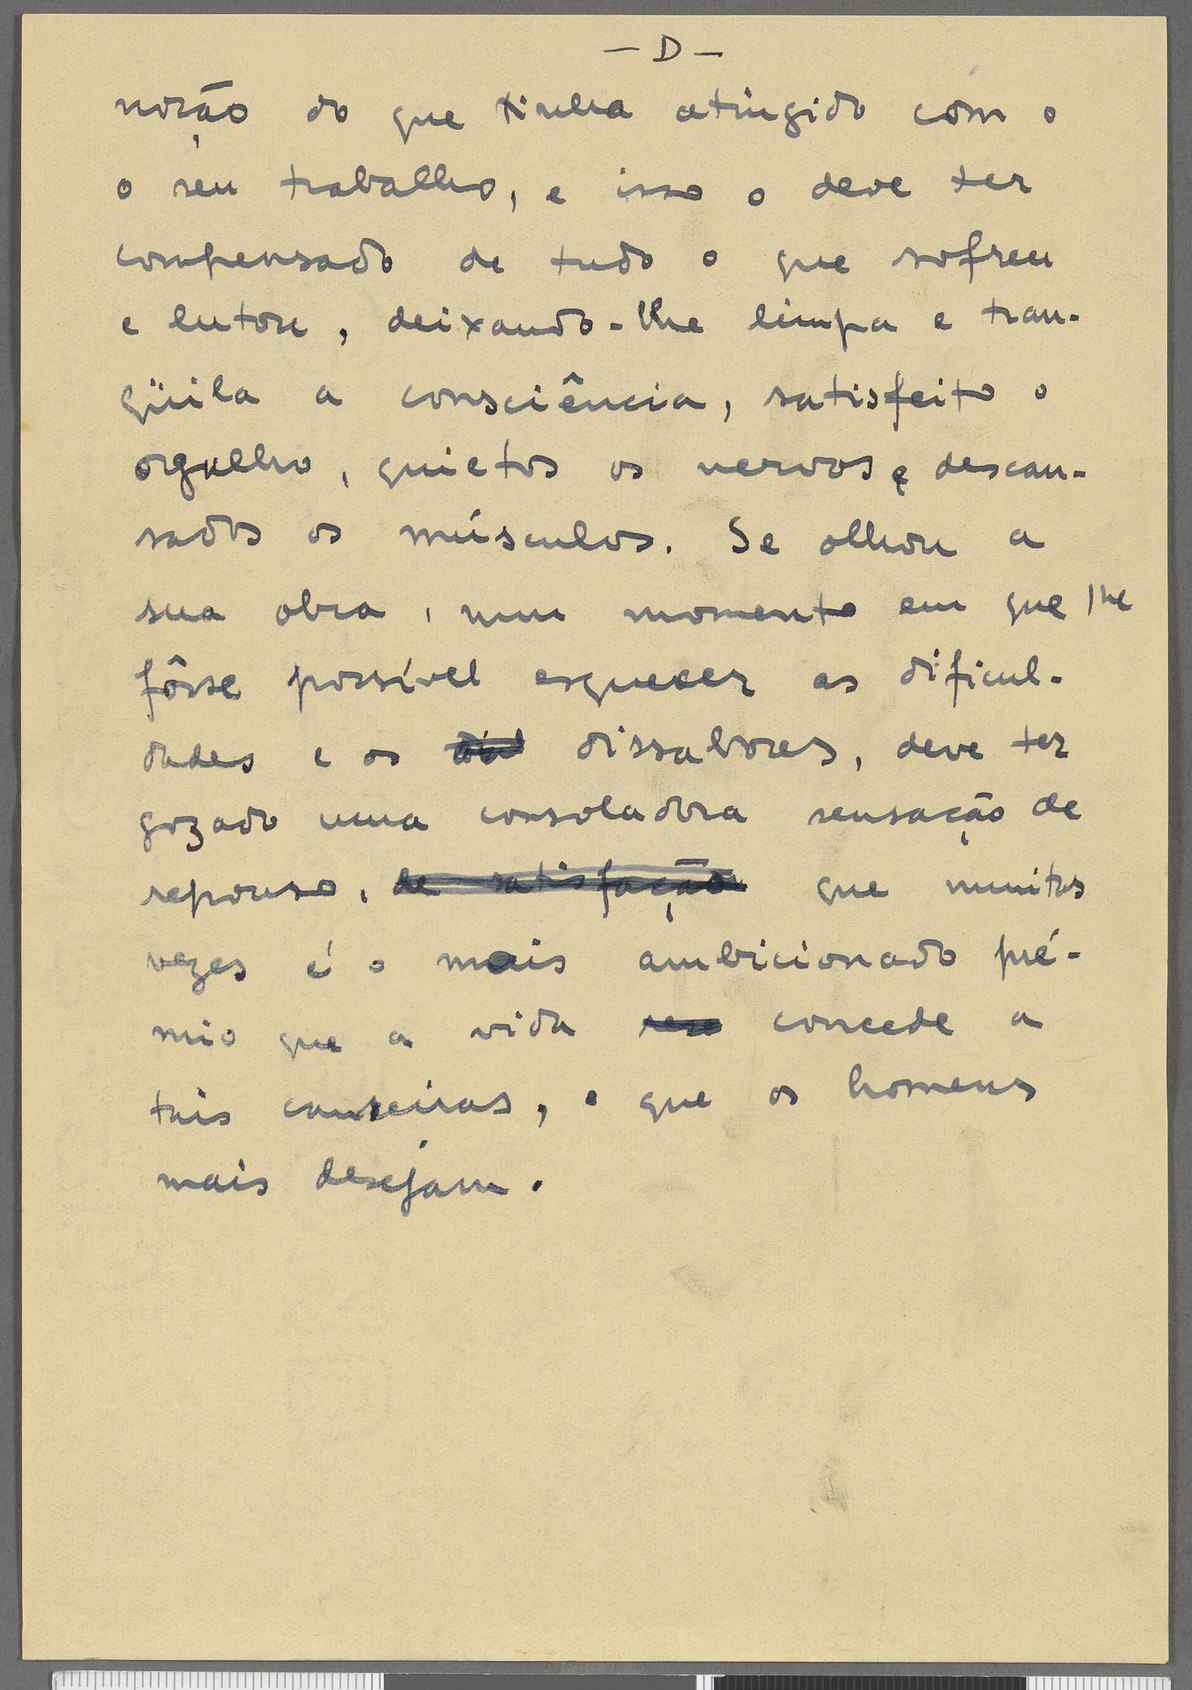 — D —
noção do que tinha atingido com o
o seu trabalho, e isso o deve ter
compensado de tudo o que sofreu
e lutou, deixando-lhe limpa e tran-
qüila a consciência, satisfeito o
orgulho, quietos os nervos e descan-
sados os músculos. Se olhou a
sua obra, num momento em que lhe
fôsse possível esquecer as dificul-
dades e os dissabores, deve ter
gozado uma consoladora sensação de
repouso, de satisfação que muitas
vezes é o mais ambicionado pré-
mio que a vida concede a
tais canseiras, o que os homens
mais desejam.